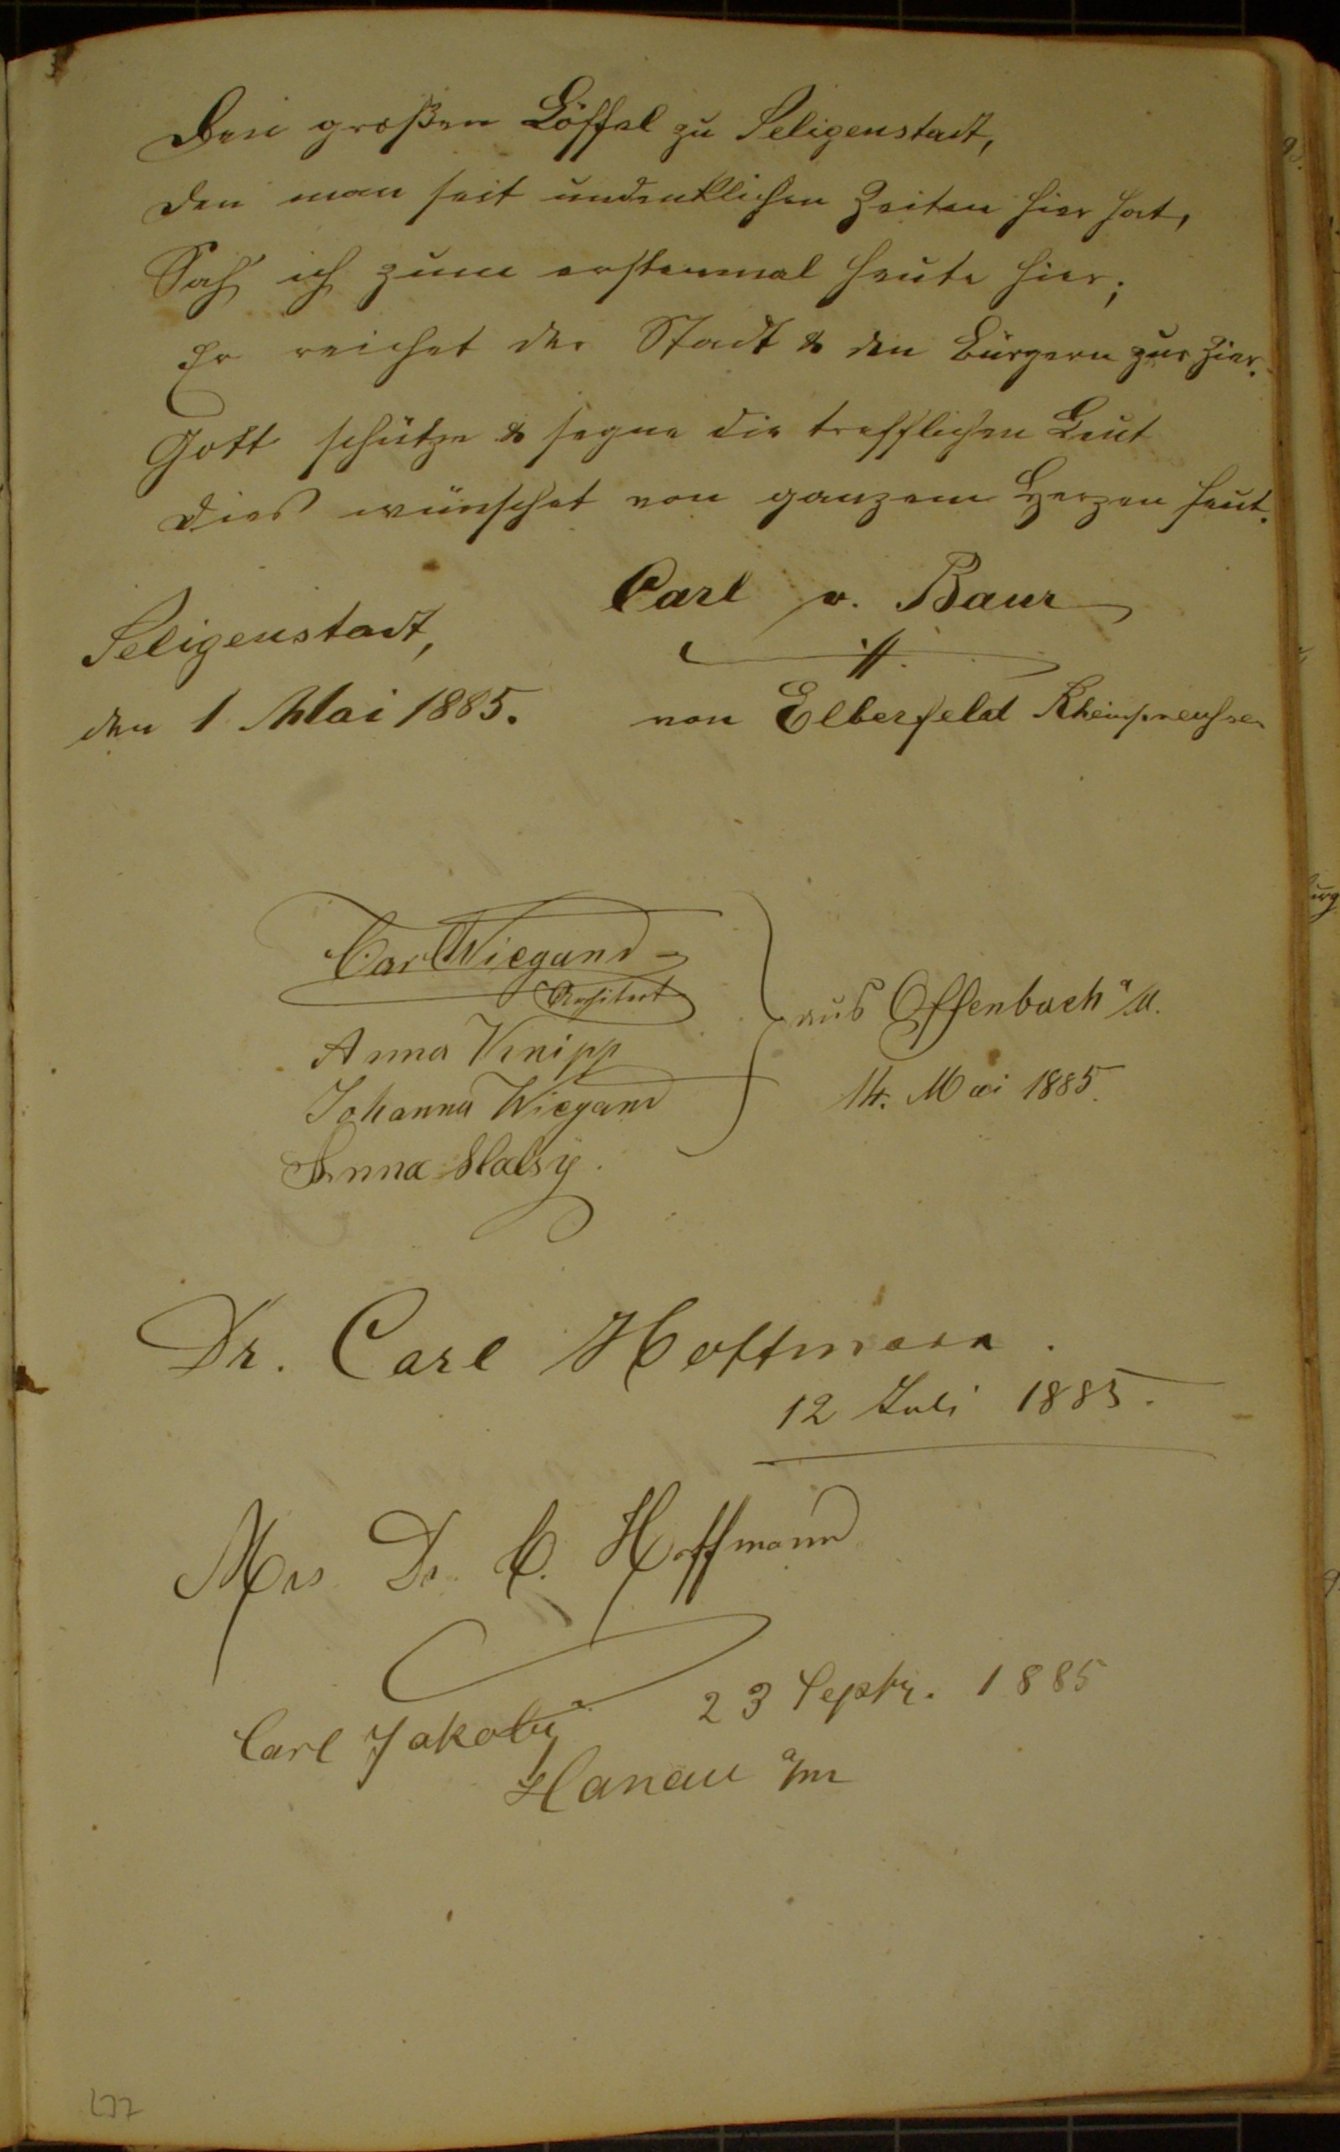 Den großen Löffel zu Seligenstadt,
den man seit undenklichen Zeiten hier hat,
Sah' ich zum erstenmal heute hier;
Er reichet der Stadt & den Bürgern zur Zier.
Gott schütze & segne die trefflichen Leut
dies wünschet von ganzem Herzen heut.
Carl v. Baur
Seligenstadt,
den 1 Mai 1885.
von Elberfeld Rheinpreußen
Carl Wiegand
Architect
Anna Knipp
Johanna Wiegand
Anna
aus Offenbach a/M.
14. Mai 1885.
Dr. Carl Hoffmann.
12 Juli 1885.
Mrs Dr. C. Hoffmann
23 Septr. 1885
Carl Jakoby
Hanau a/m